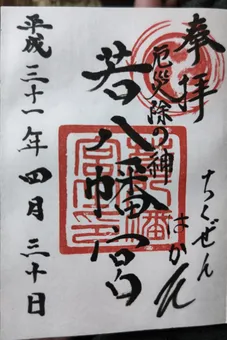 奉拝
厄災除の神
若八幡宮
ちくぜん
はかた
平成三十一年四月三十日